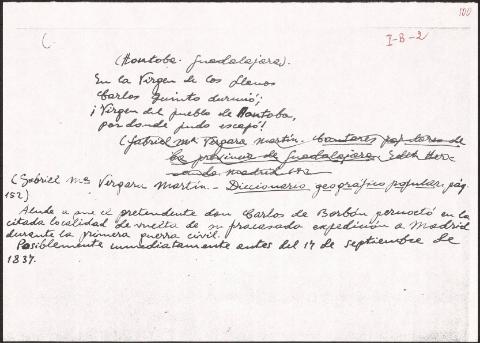 100
I-B-2
(Hontoba. Guadalajara).
En la Virgen de los Llanos
Carlos Quinto durmió;
¡Virgen del pueblo de Hontoba,
por donde pudo escapó!
(Gabriel Mª Vergara Martín. Cantares populares de
la provincia de Guadalajara. Edit. Her-
nando Madrid
(Gabriel Mª Vergara Martín.- Diccionario geográfico popular, pág.
152)
Alude a que el pretendente don Carlos de Borbón pernoctó en la
citada localidad de vuelta de su fracasada expedición a Madrid
durante la primera guerra civil.
Posiblemente inmediatamente antes del 17 de septiembre de
1837.